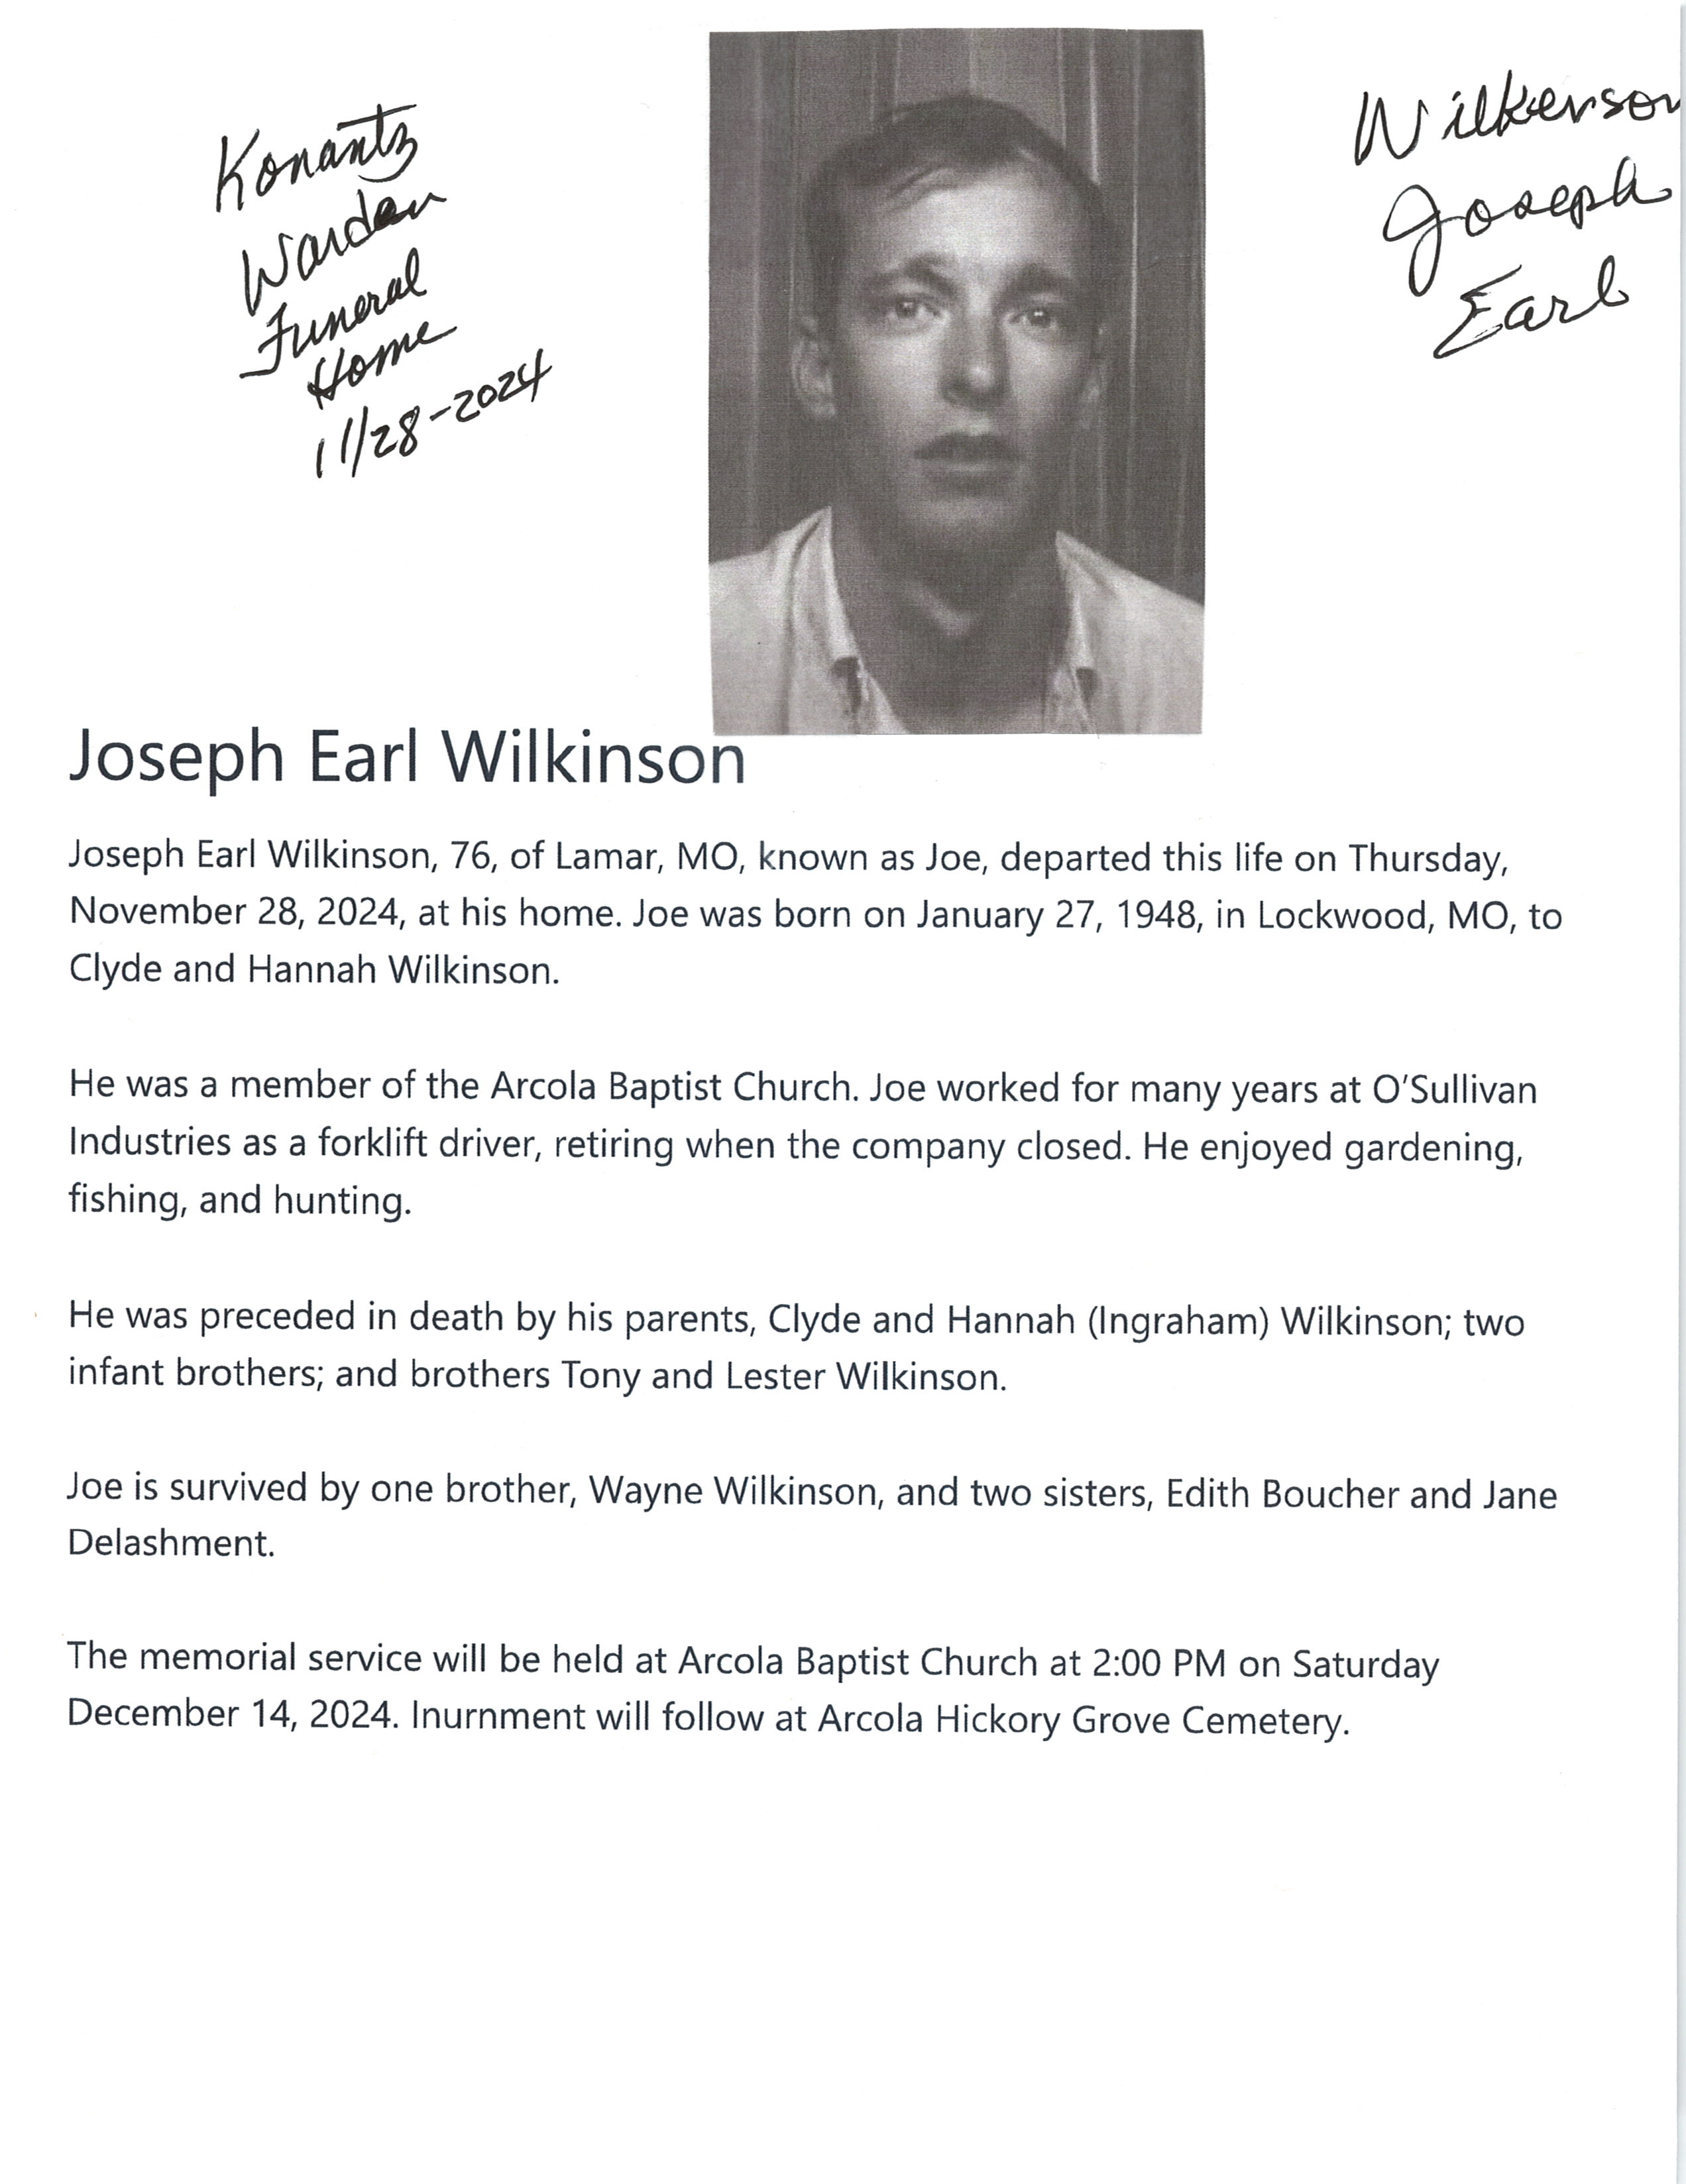 Konantz
Warden
Funeral
Home
11/28-2024
Wilkerson
Joseph
Earl
Joseph Earl Wilkinson
Joseph Earl Wilkinson, 76, of Lamar, MO, known as Joe, departed this life on Thursday,
November 28, 2024, at his home. Joe was born on January 27, 1948, in Lockwood, MO, to
Clyde and Hannah Wilkinson.
He was a member of the Arcola Baptist Church. Joe worked for many years at O'Sullivan
Industries as a forklift driver, retiring when the company closed. He enjoyed gardening,
fishing, and hunting.
He was preceded in death by his parents, Clyde and Hannah (Ingraham) Wilkinson; two
infant brothers; and brothers Tony and Lester Wilkinson.
Joe is survived by one brother, Wayne Wilkinson, and two sisters, Edith Boucher and Jane
Delashment.
The memorial service will be held at Arcola Baptist Church at 2:00 PM on Saturday
December 14, 2024. Inurnment will follow at Arcola Hickory Grove Cemetery.